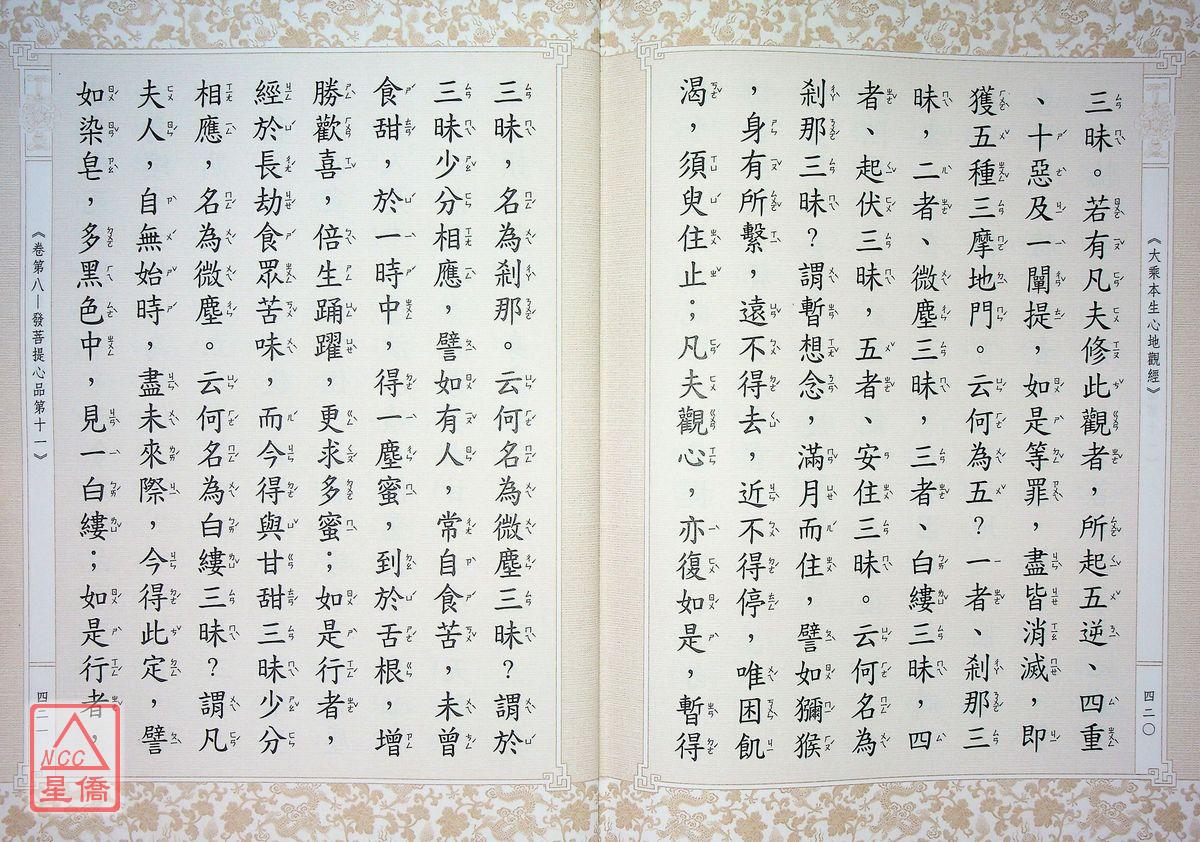 《大乘本生心地觀經》
四二〇
三昧。若有凡夫修此觀者，所起五逆、四重
、十惡及一闡提，如是等罪，盡皆消滅，即
獲五種三摩地門。云何為五？一者、剎那三
昧，二者、微塵三昧，三者、白縷三昧，四
者、起伏三昧，五者、安住三昧。云何名為
剎那三昧？謂暫想念，滿月而住，譬如獼猴
，身有所繫，遠不得去，近不得停，唯困飢
渴，須臾住止；凡夫觀心，亦復如是，暫得
三昧，名為剎那。云何名為微塵三昧？謂於
三昧少分相應，譬如有人，常自食苦，未曾
食甜，於一時中，得一塵蜜，到於舌根，增
勝歡喜，倍生踊躍，更求多蜜；如是行者，
經於長劫食眾苦味，而今得與甘甜三昧少分
相應，名為微塵。云何名為白縷三昧？謂凡
夫人，自無始時，盡未來際，今得此定，譬
如染皂，多黑色中，見一白縷；如是行者，
《卷第八—發菩提心品第十一》
四二一
NCC
星僑